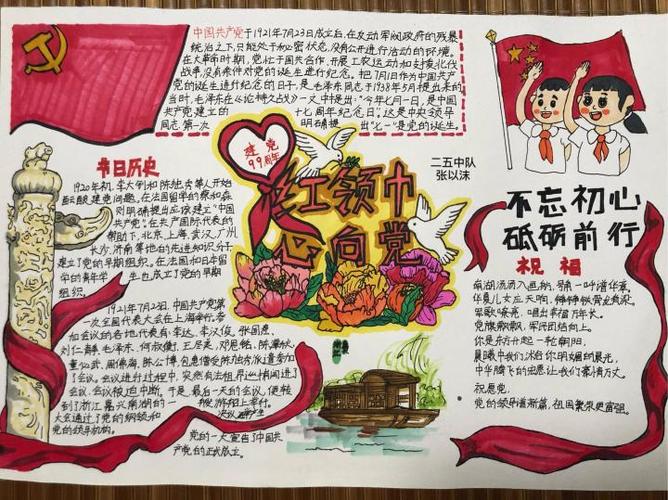 中国共产党于1921年7月23日成立后,在反动军阀政府的残暴
统治之下,只能处于秘密状态,没有公开进行活动的环境。
在大革命时期,党忙于国共合作、开展工农运动和支援北伐
战争,没有条件对党的诞生进行纪念。把7月1日作为中国共产
党的诞生进行纪念的日子,是毛泽东同志于1938年5月提出来的
当时,毛泽东在《论持久战》一文中提出:“今年七月一日,是中国
共产党建立的十七周年纪念日”,这是中央领导
同志第一次明确提出“七一”是党的诞生。
建党
99周年
红领巾
心向党
二五中队
张以沫
不忘初心
砥砺前行
节日历史
1920年初,李大钊和陈独秀等人开始
酝酿建党问题。在法国留学的蔡和森
则明确提出应该建立“中国
共产党”。在共产国际代表的
帮助下,北京、上海、武汉、广州
长沙、济南等地的先进知识分子
建立了党的早期组织。在法国和日年
留学的青年学生也成立了党的早期
组织。
1921年7月23日,中国共产党第
一次全国代表大会在上海举行。参
加会议的各地代表有:李达、李汉俊、张国焘、
刘仁静、毛泽东、何叔衡、王尽美、邓恩铭、陈潭秋、
董必武、周佛海、陈公博、包惠僧受陈独秀派遣参加
了会议。会议进行过程中,突然有法租界巡捕闯进了
会议,会议被迫中断。于是,最后一天的会议,便转
到了浙江嘉兴南湖的一艘游船上举行。
大会通过了党的纲领和
党的领导机构。
党的一大宣告了中国共
产党的正式成立。
祝福
南湖荡荡入画舫,
华夏儿女
军歌嘹亮,唱出幸福万年长。
党旗飘飘,军民团结向上。
你是东方升起一轮朝阳,
晨曦中我们沐浴你明媚的晨光,
中华腾飞的思想让我们豪情万丈。
祝愿党
党的领导谱新篇,祖国繁荣更富强。